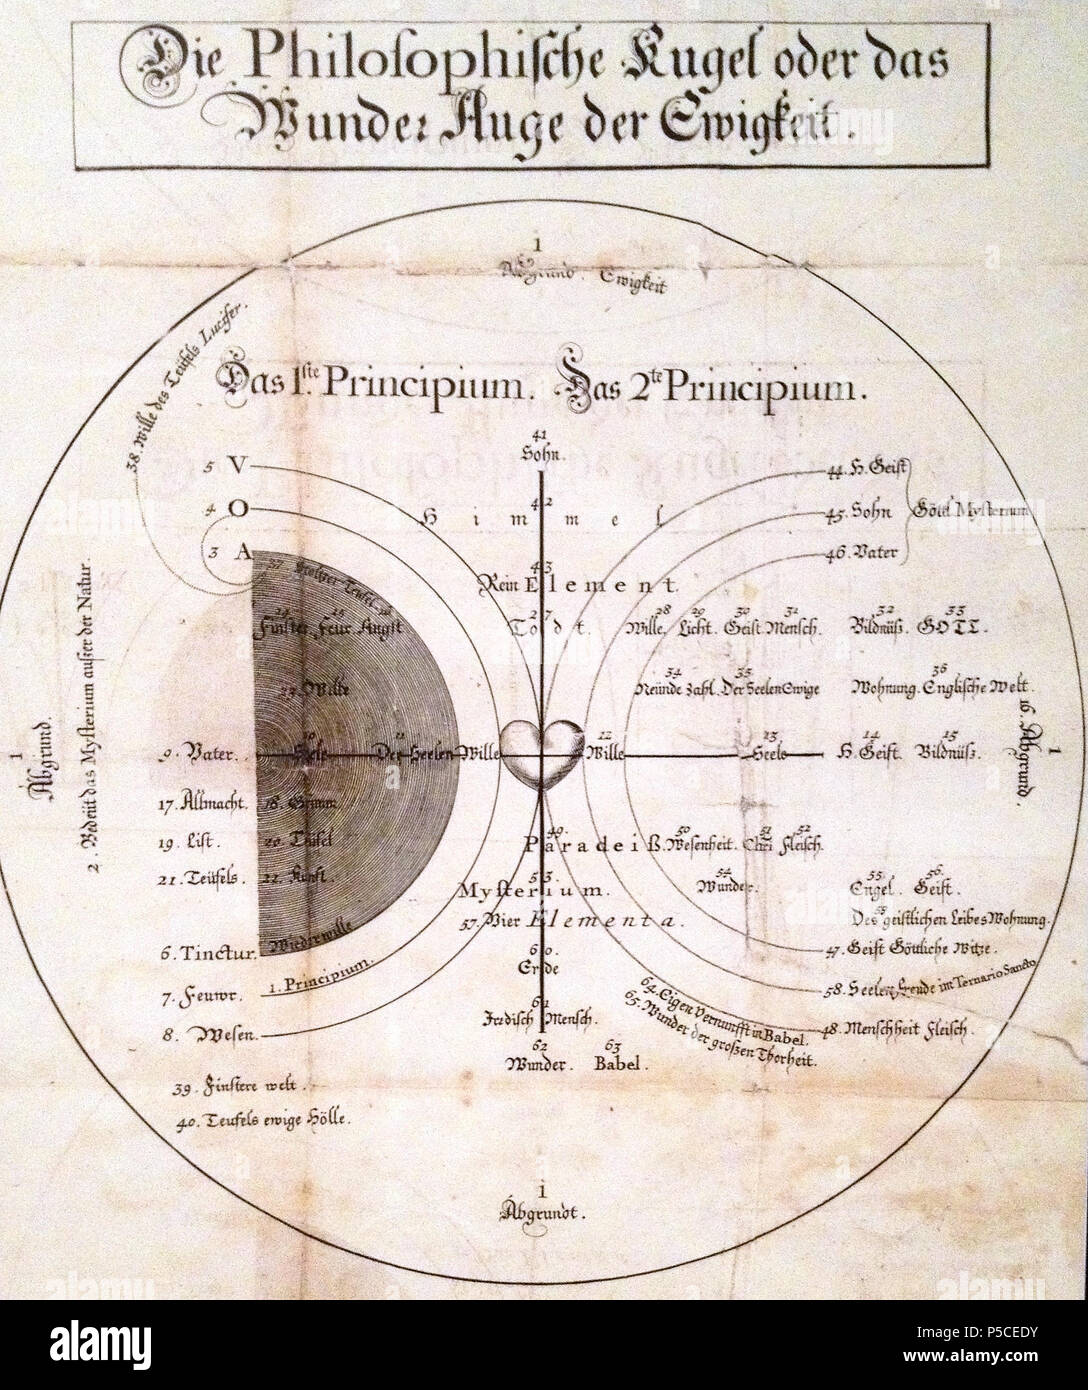 Die Philosophische Kugel oder das
Wunder Auge der Ewigkeit.
1
Abgrund. Ewigkeit
38. Wille des Teüfels Lucifer.
Das 1.ste Principium. Das 2te Principium.
41
Sohn.
5 V
44. H. Geist
4 O
42
Himmel
45. Sohn Göttl Mysterium
3 A
46. Vater
43
Rein Element.
37 Stoltzer Teüfel
24 25 26
Finster Feur. Angst
27
Todt.
28 29 30 31
Wille. Licht. Geist. Mensch.
32 33
Bildnüß. GOTT.
34 35
Neünde Zahl. Der Seelen Ewige
36
Wohnung. Englische Welt.
23. Wille
1
Abgrund.
2. Bedeüt das Mysterium außer der Natur
9. Vater.
10 Seele
11 Der Seelen Wille
12 Wille
13 Seele
14 15
H. Geist. Bildnüß.
16. Abgrund.
1
17. Allmacht. 18. Grimm
19. List. 20. Teüfel
21. Teüfels. 22. Kunst.
49.
Paradeiß.
50 51 52
Wesenheit. Chri Fleisch.
53.
Mysterium.
54
Wunder.
55. 56.
Engel. Geist.
57. Vier Elementa.
59
Des geistlichen Leibes Wohnung.
6. Tinctur. Wiederwille
60.
Erde
47. Geist Göttliche Witze.
7. Feuwr. 1. Principium.
58. Seelen Freude im Ternario Sancto
61
Irdisch Mensch.
64. Eigen Vernunfft in Babel.
65. Wunder der großen Thorheit.
8. Wesen.
48. Menschheit Fleisch.
62 63
Wunder. Babel.
39. Finstere welt.
40. Teufels ewige Hölle.
1
Abgrundt.
alamy
Image ID: P5CEDY
www.alamy.com